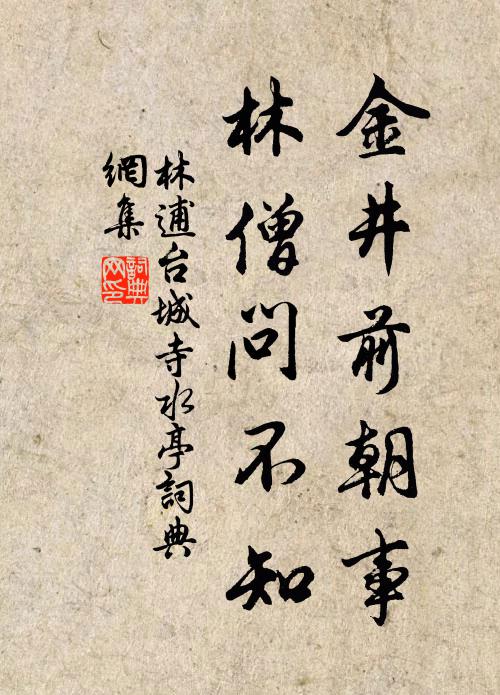 金井前朝事
林僧問不知
林逋台城寺水亭詞典
網集
詞典網印